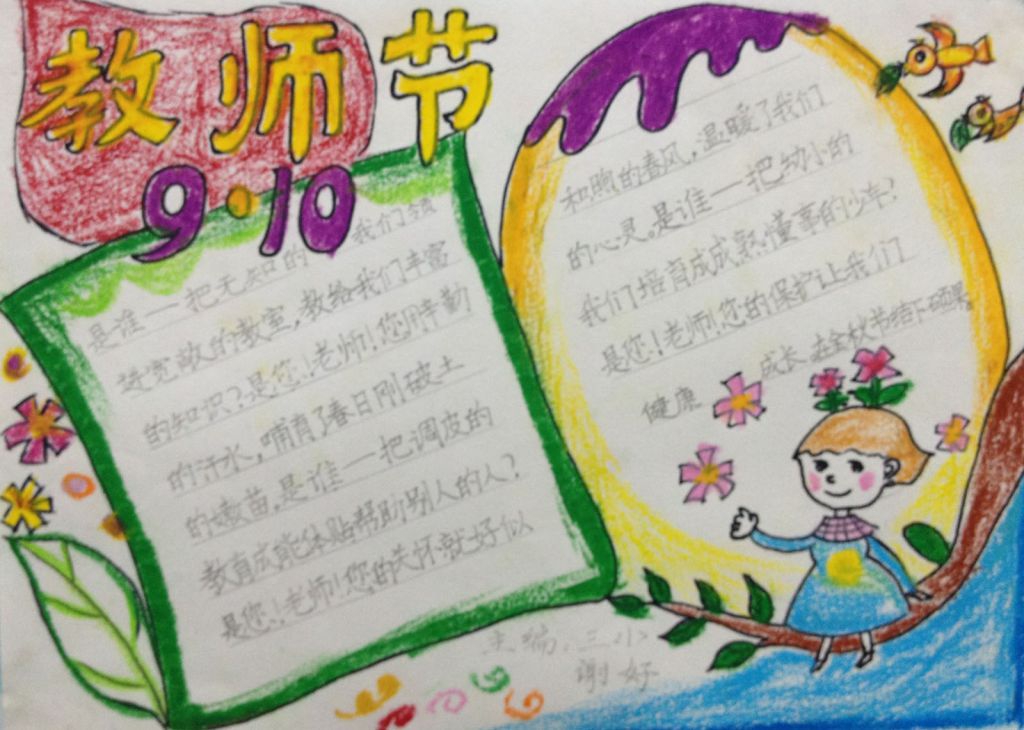 教师节
9·10
是谁——把无知的我们领
进宽敞的教室,教给我们丰富
的知识?是您!老师!您用辛勤
的汗水,哺育了春日刚破土
的嫩苗,是谁——把调皮的
教育成能体贴帮助别人的人?
是您!老师!您的关怀就好似
和煦的春风,温暖了我们
的心灵。是谁——把幼小的
我们培育成成熟懂事的少年?
是您!老师!您的保护让我们
健康成长在金秋节结下硕果
主编:三小
谢好